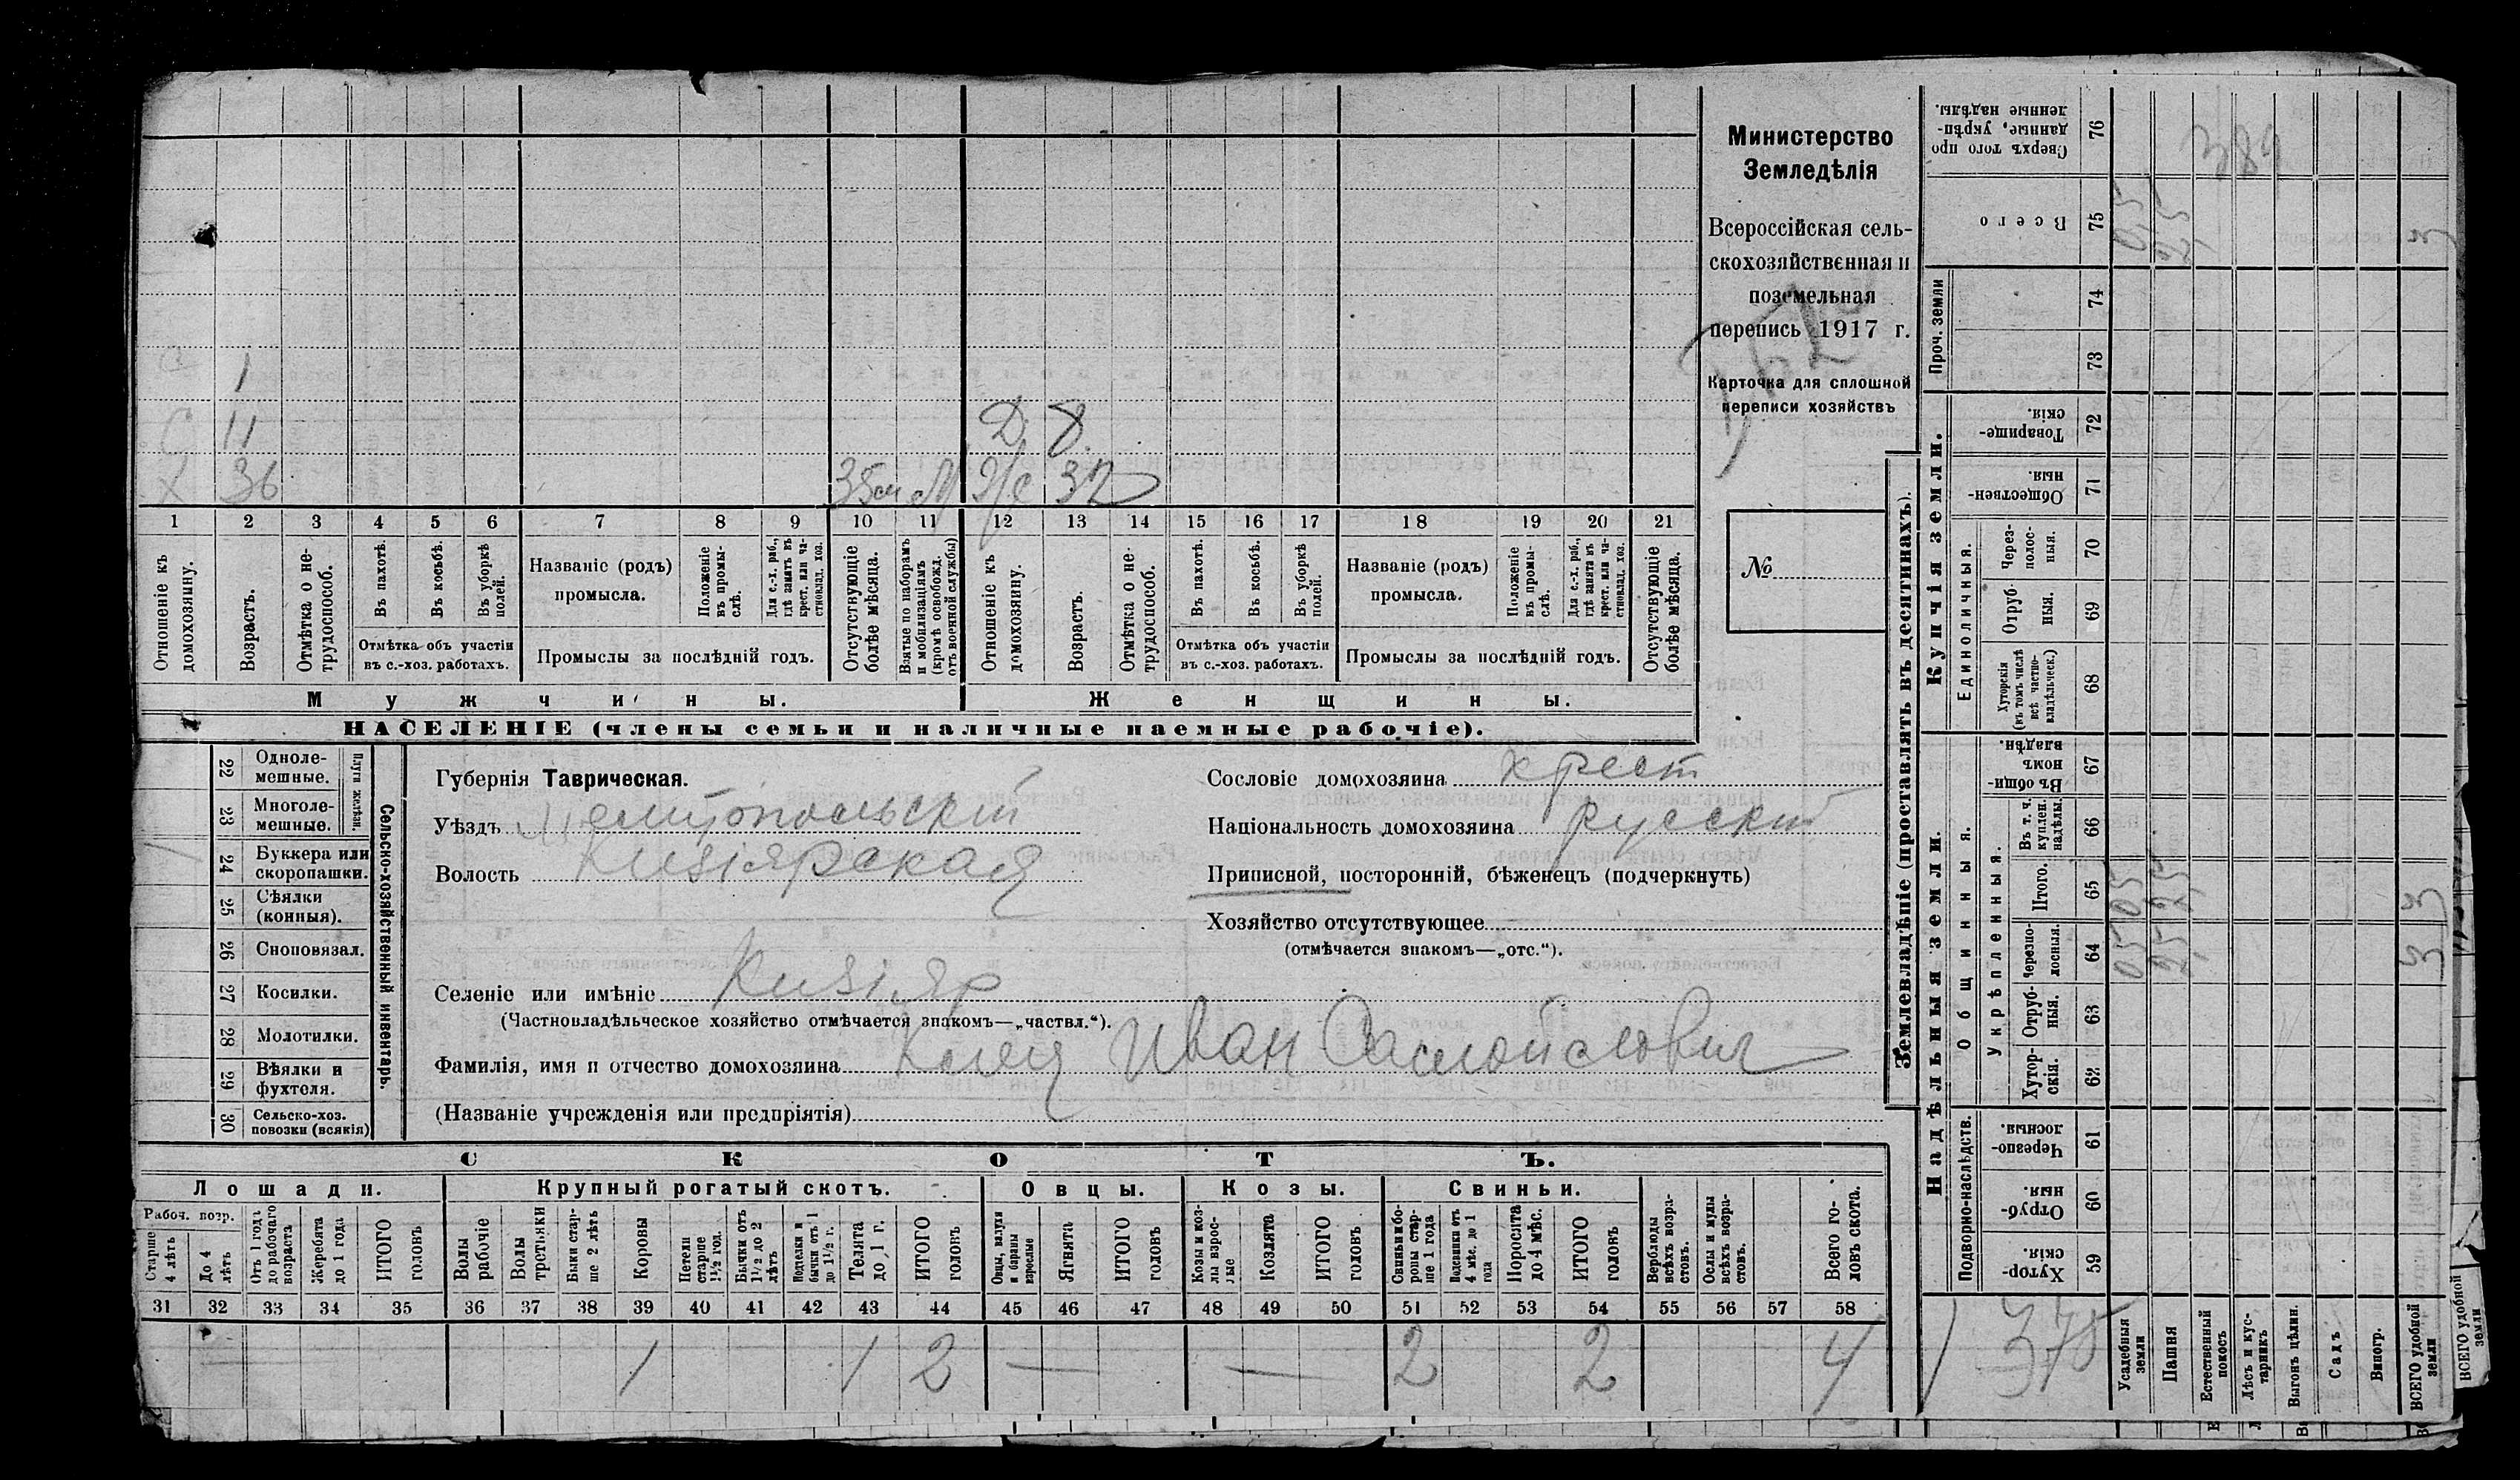 Министерство
Земледѣлія
Всероссійская сель-
скохозяйственная и
поземельная
перепись 1917 г.
Карточка для сплошной
переписи хозяйствъ
№
С 1
С 11 Д 8
Х 36 М 32
1 2 3 4 5 6 7 8 9 10 11 12 13 14 15 16 17 18 19 20 21
Отношеніе къ домохозяину.
Возрастъ.
Отмѣтка о не-трудоспособ.
Въ пахотѣ.
Въ косьбѣ.
Въ уборкѣ полей.
Отмѣтка объ участіи
въ с.-хоз. работахъ.
Названіе (родъ)
промысла.
Положеніе въ промы-слѣ.
Для с.-х. раб., гдѣ занятъ въ крест. или ча-стновлад. хоз.
Промыслы за послѣдній годъ.
Отсутствующіе болѣе мѣсяца.
Взятые по наборамъ и мобилизаціямъ (кромѣ освобожд. отъ военной службы)
Отношеніе къ домохозяину.
Возрастъ.
Отмѣтка о не-трудоспособ.
Въ пахотѣ.
Въ косьбѣ.
Въ уборкѣ полей.
Отмѣтка объ участіи
въ с.-хоз. работахъ.
Названіе (родъ)
промысла.
Положеніе въ промы-слѣ.
Для с.-х. раб., гдѣ занята въ крест. или ча-стновлад. хоз.
Промыслы за послѣдній годъ.
Отсутствующіе болѣе мѣсяца.
Мужчины. Женщины.
НАСЕЛЕНІЕ (члены семьи и наличные наемные рабочіе).
Сельско-хозяйственный инвентарь.
Плуги желѣзн.
22 Одноле-мешные.
23 Многоле-мешные.
24 Буккера или скоропашки.
25 Сѣялки (конныя).
26 Сноповязал.
27 Косилки.
28 Молотилки.
29 Вѣялки и фухтеля.
30 Сельско-хоз. повозки (всякія)
Губернія Таврическая.
Уѣздъ Мелитопольскій
Волость Кизіярская
Селеніе или имѣніе Кизіяр
(Частновладѣльческое хозяйство отмѣчается знакомъ—„частвл.“).
Фамилія, имя и отчество домохозяина Иван Самойлович
(Названіе учрежденія или предпріятія)
Сословіе домохозяина крест
Національность домохозяина русскій
Приписной, посторонній, бѣженецъ (подчеркнуть)
Хозяйство отсутствующее
(отмѣчается знакомъ—„отс.“).
СКОТЪ.
Лошади. Крупный рогатый скотъ. Овцы. Козы. Свиньи.
Рабоч. возр.
Старше 4 лѣтъ
До 4 лѣтъ
Отъ 1 года до рабочаго возраста
Жеребята до 1 года
ИТОГО головъ
Волы рабочіе
Волы третьяки
Быки стар-ше 2 лѣтъ
Коровы
Нетели старше 1½ год.
Бычки отъ 1½ до 2 лѣтъ
Подтелки и бычки отъ 1 до 1½ г.
Телята до 1 г.
ИТОГО головъ
Овцы, валухи и бараны взрослые
Ягнята
ИТОГО головъ
Козы и коз-лы взрос-лые
Козлята
ИТОГО головъ
Свиньи и бо-ровы стар-ше 1 года
Подсвинки отъ 4 мѣс. до 1 года
Поросята до 4 мѣс.
ИТОГО головъ
Верблюды всѣхъ возра-стовъ.
Ослы и мулы всѣхъ возра-стовъ.
Всего го-ловъ скота.
31 32 33 34 35 36 37 38 39 40 41 42 43 44 45 46 47 48 49 50 51 52 53 54 55 56 57 58
1 1 2 — — 2 2 4
Землевладѣніе (проставлять въ десятинахъ).
Надѣльныя земли. Купчія земли.
Проч. земли
Сверхъ того про-данные, укрѣп-ленные надѣлы. 76
389
Всего 75
74
73
Товарище-скія. 72
Обществен-ныя. 71
Единоличныя.
Через-полос-ныя. 70
Отруб-ныя. 69
Хуторскія (въ томъ числѣ всѣ частно-владѣльческ.) 68
Общинныя.
Въ общи-номъ владѣн. 67
Укрѣпленныя.
Въ т. ч. куплен. надѣлы. 66
Итого. 65
Черезпо-лосныя. 64
Отруб-ныя. 63
Хутор-скія. 62
Подворно-наслѣдств.
Черезпо-лосныя. 61
Отруб-ныя. 60
Хутор-скія. 59
1 378
Усадебныя земли
Пашня
Естественный покосъ
Лѣсъ и кус-тарникъ
Выгонъ цѣлин.
Садъ
Виногр.
ВСЕГО удобной земли
ВСЕГО удобной земли